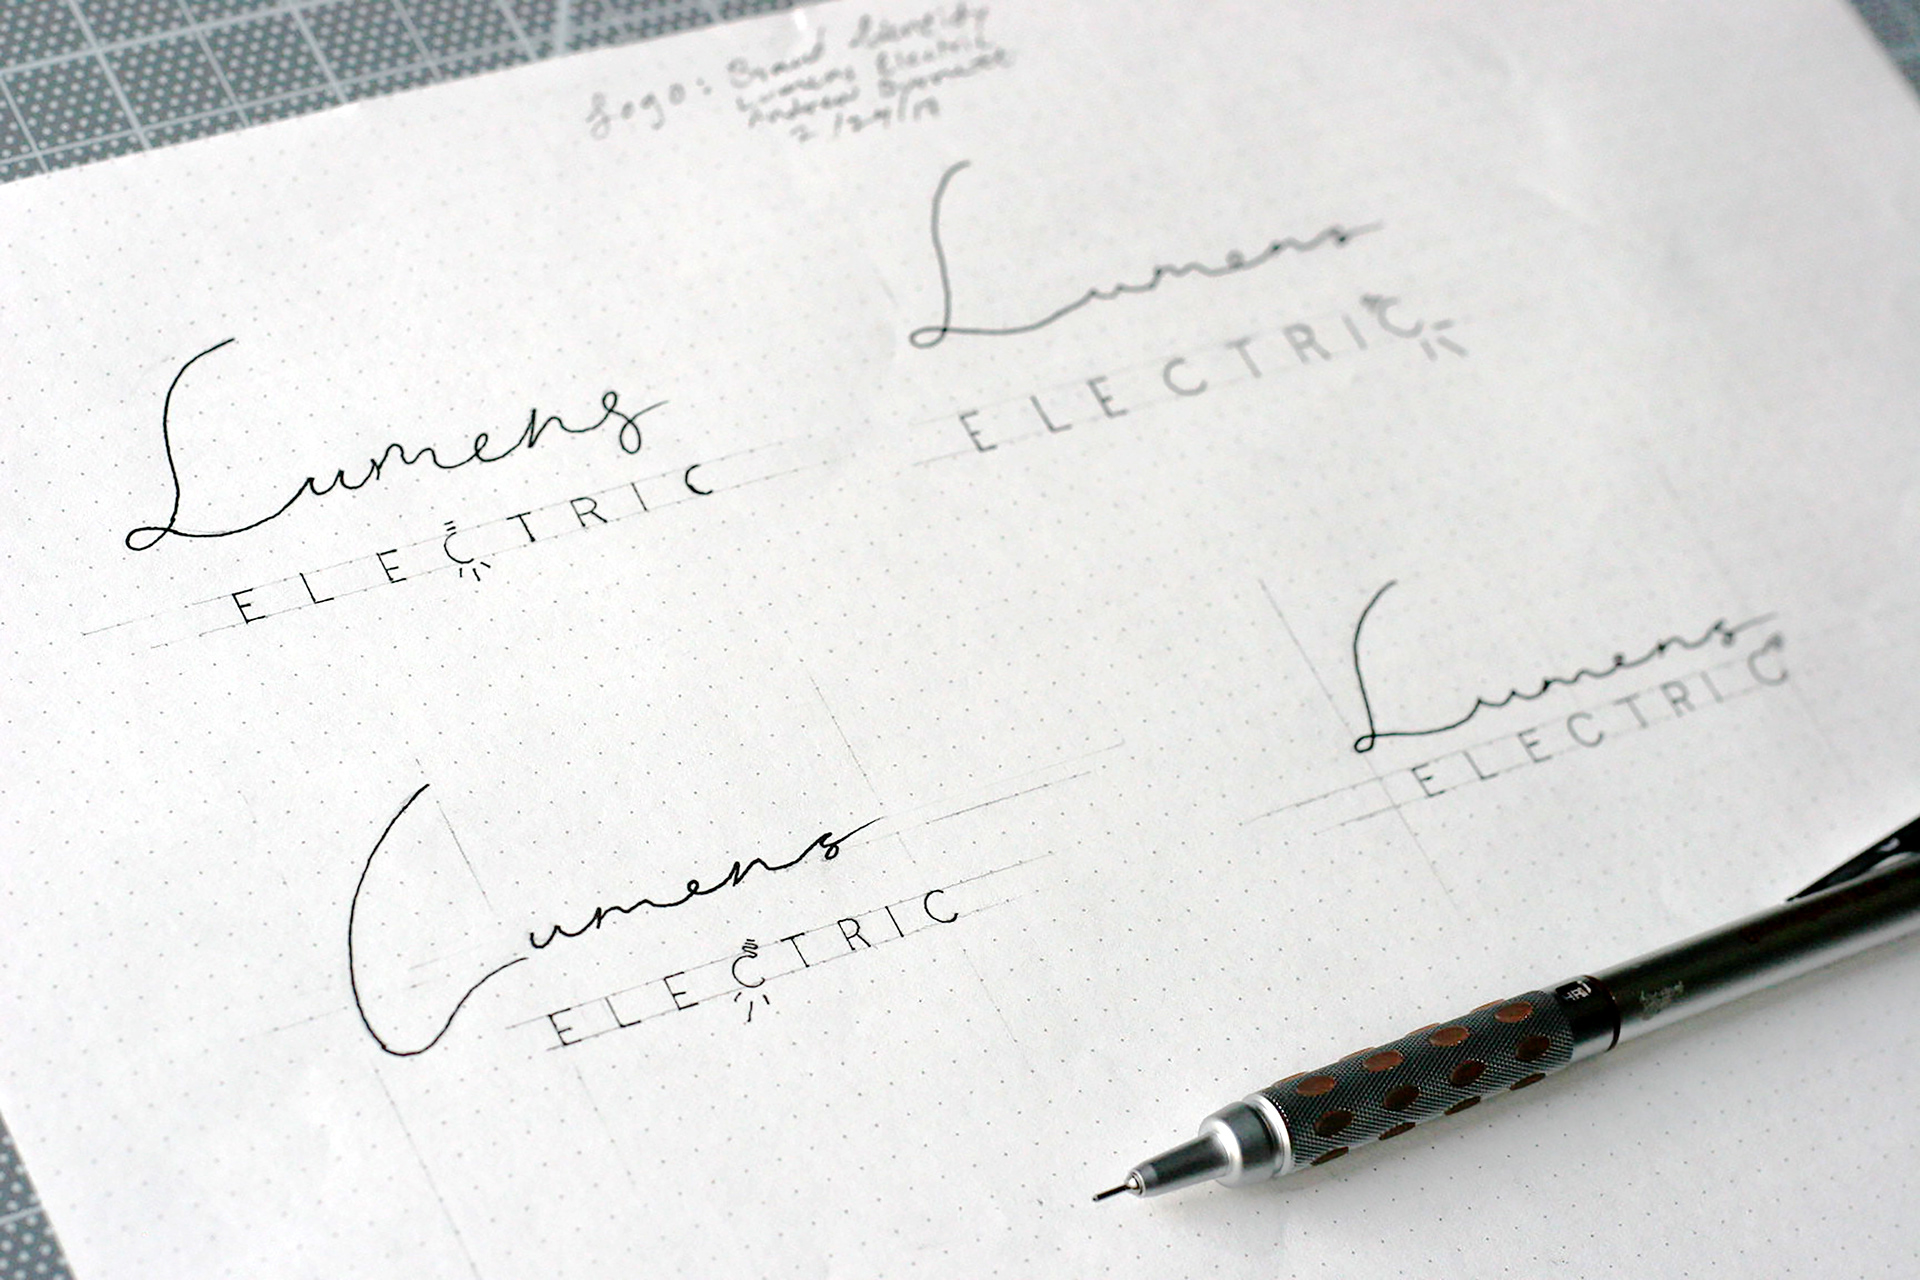 Logo: Brand Identity
Lumens Electric
Andrew
2/24/18
Lumens
ELECTRIC
Lumens
ELECTRIC
Lumens
ELECTRIC
Lumens
ELECTRIC